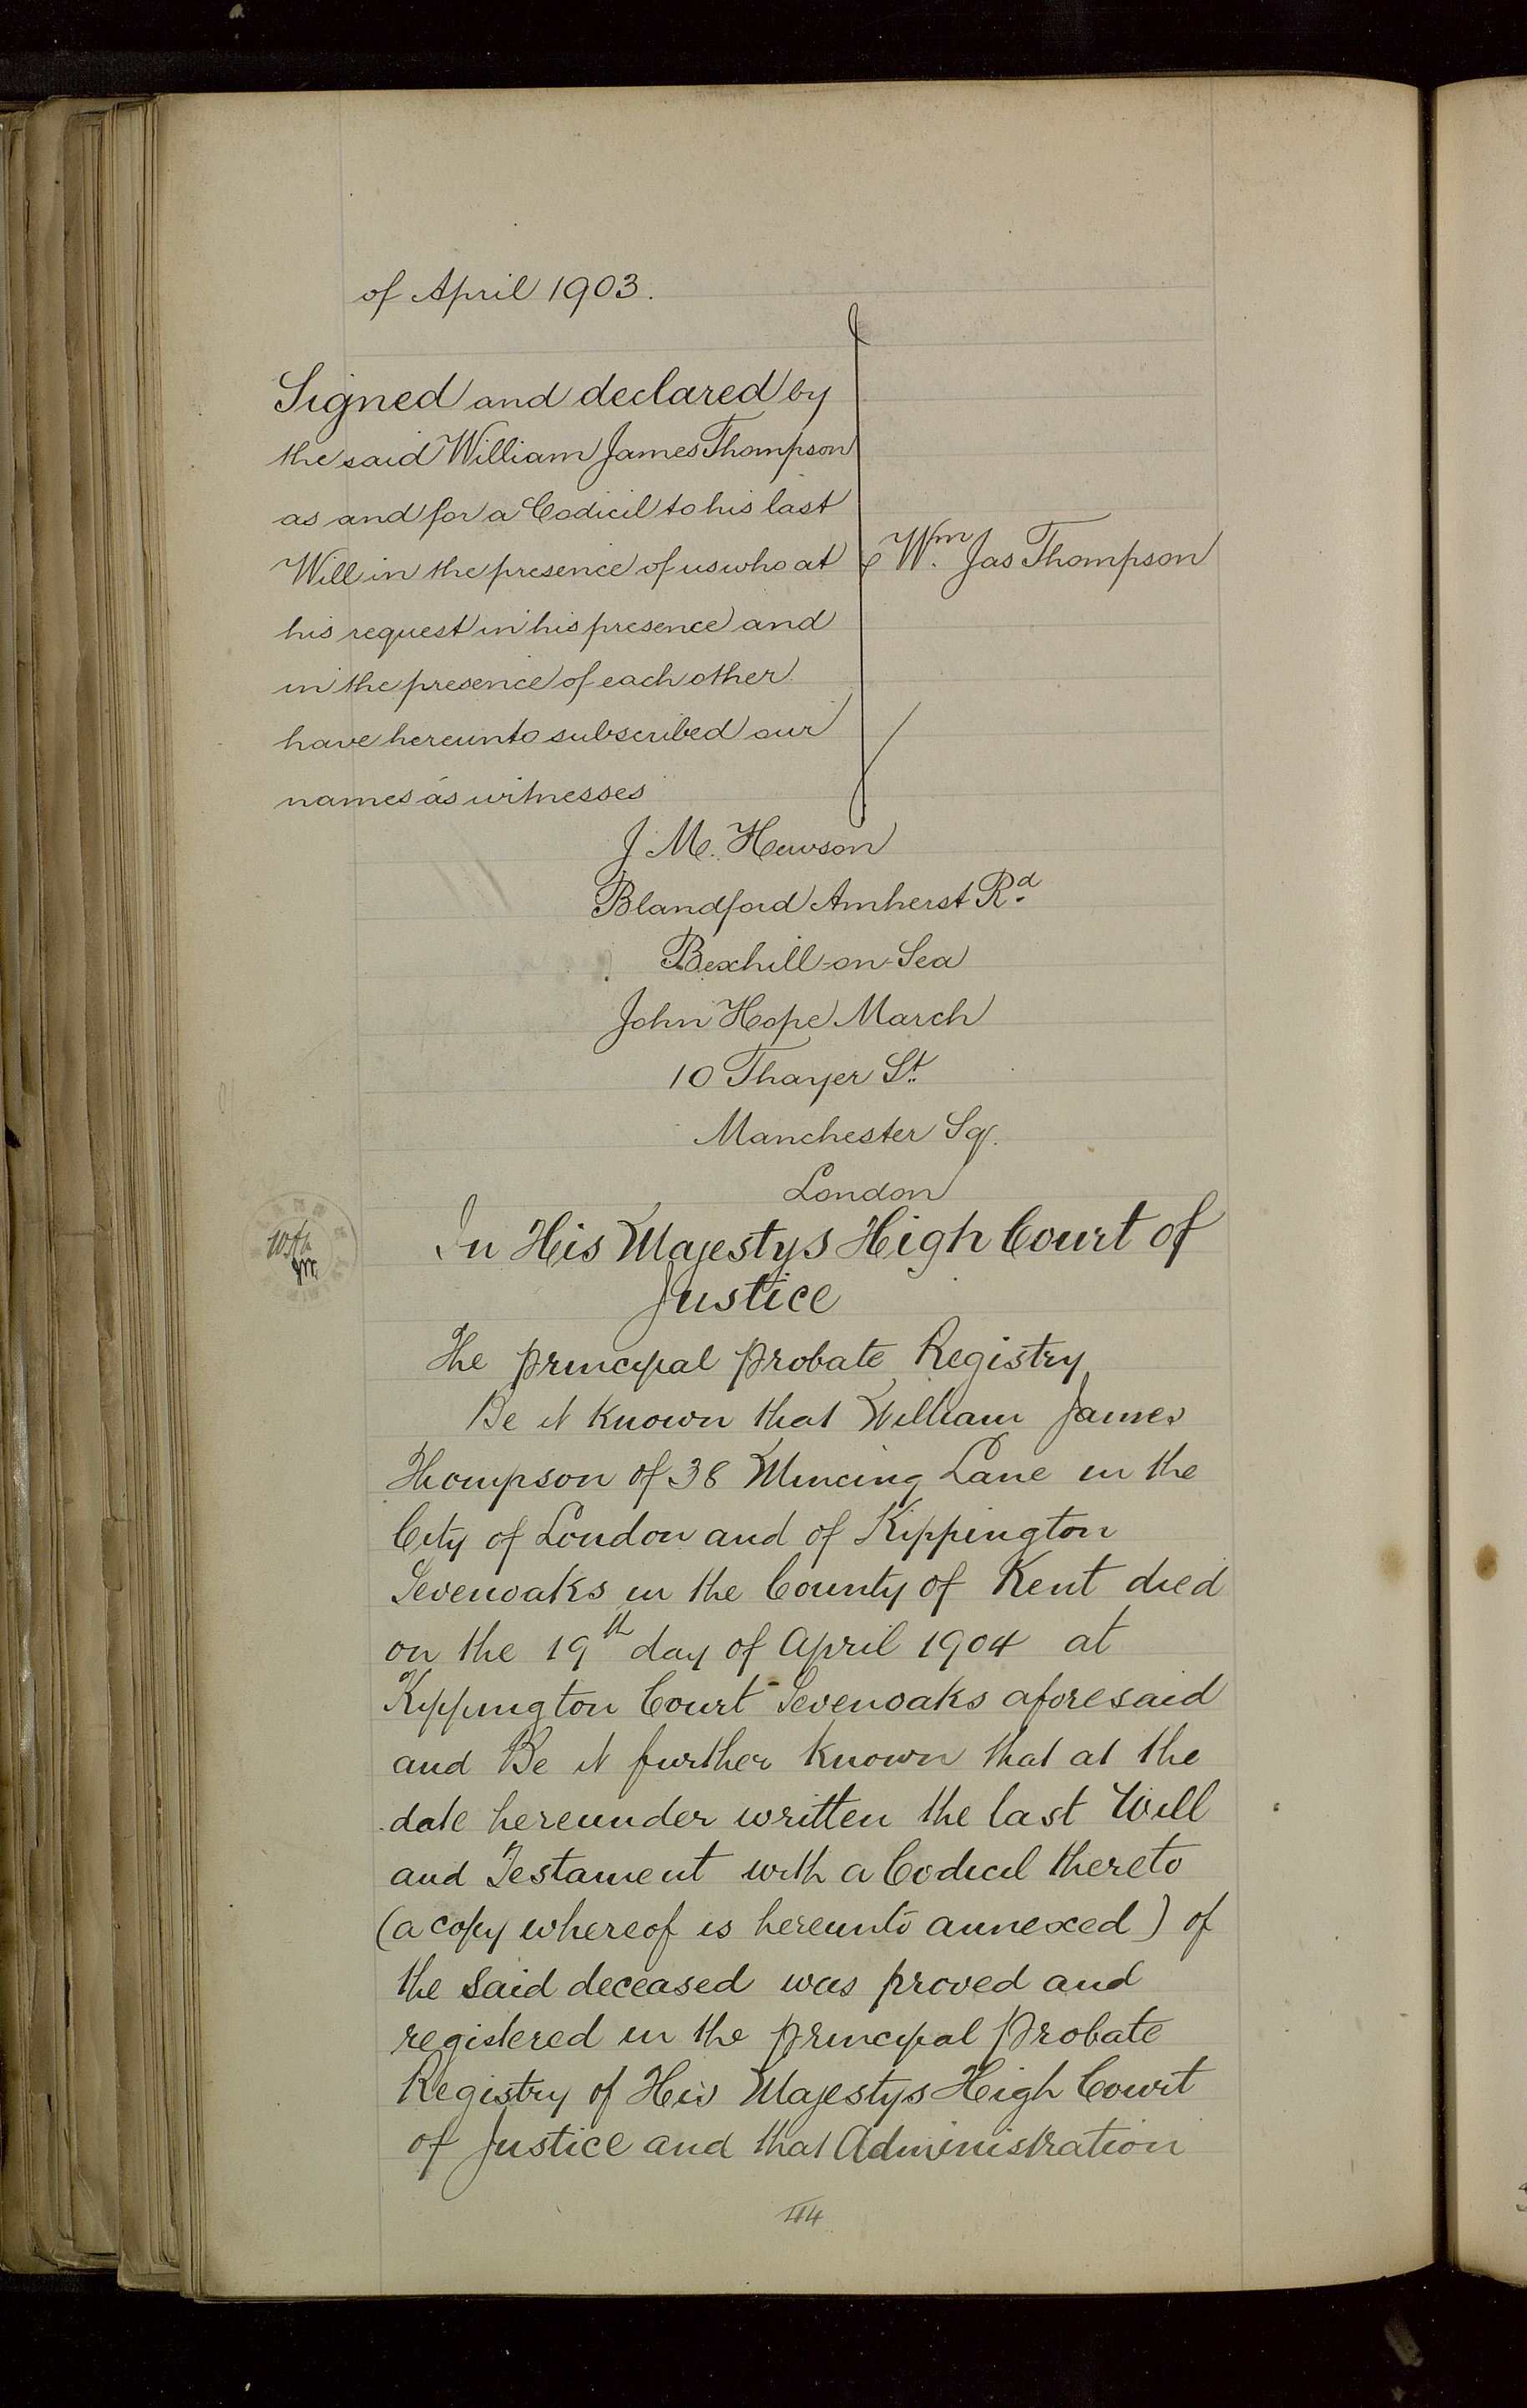 of April 1903.
Signed and declared by
the said William James Thompson
as and for a Codicil to his last
Will in the presence of us who at
his request in his presence and
in the presence of each other
have hereunto subscribed our
names as witnesses
Wm. Jas Thompson
J. M. Hewson
Blandford Amherst Rd.
Bexhill-on-Sea
John Hope March
10 Thayer St.
Manchester Sq.
London
In His Majestys High Court of
Justice
The principal probate Registry
Be it known that William James
Thompson of 38 Mincing Lane in the
City of London and of Kippington
Sevenoaks in the County of Kent died
on the 19th day of April 1904 at
Kippington Court Sevenoaks aforesaid
and Be it further known that at the
date hereunder written the last Will
and Testament with a Codicil thereto
(a copy whereof is hereunto annexed) of
the said deceased was proved and
registered in the principal Probate
Registry of His Majestys High Court
of Justice and that Administration